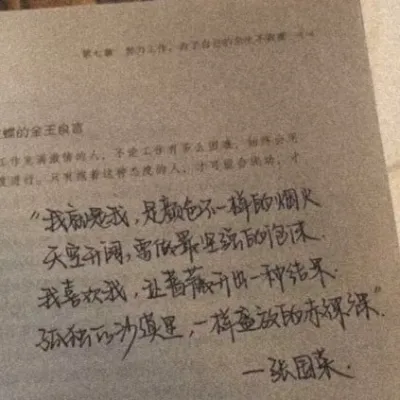 第七章 努力工作,为了自己的
的金玉良言
工作充满激情的人,不论工作有多么困难,始终会
度进行。只有抱着这种态度的人,才可能会成功,才
“我就是我,是颜色不一样的烟火
天空开阔,要做最坚强的泡沫.
我喜欢我,让蔷薇开出一种结果.
孤独的沙漠里,一样盛放的赤裸裸”
—张国荣.